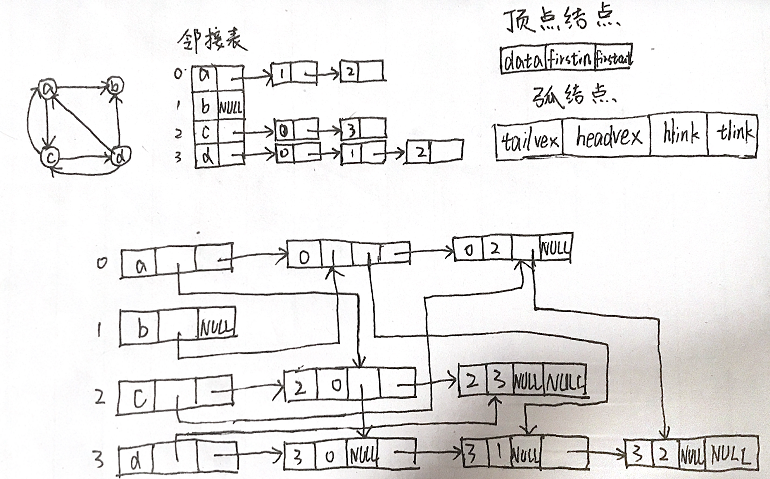 邻接表
0 a 1 2
1 b NULL
2 c 0 3
3 d 0 1 2
a b
c d
顶点结点
data firstin firstout
弧结点
tailvex headvex hlink tlink
0 a 0 1 0 2 NULL
1 b NULL
2 C 2 0 2 3 NULL NULL
3 d 3 0 NULL 3 1 NULL 3 2 NULL NULL